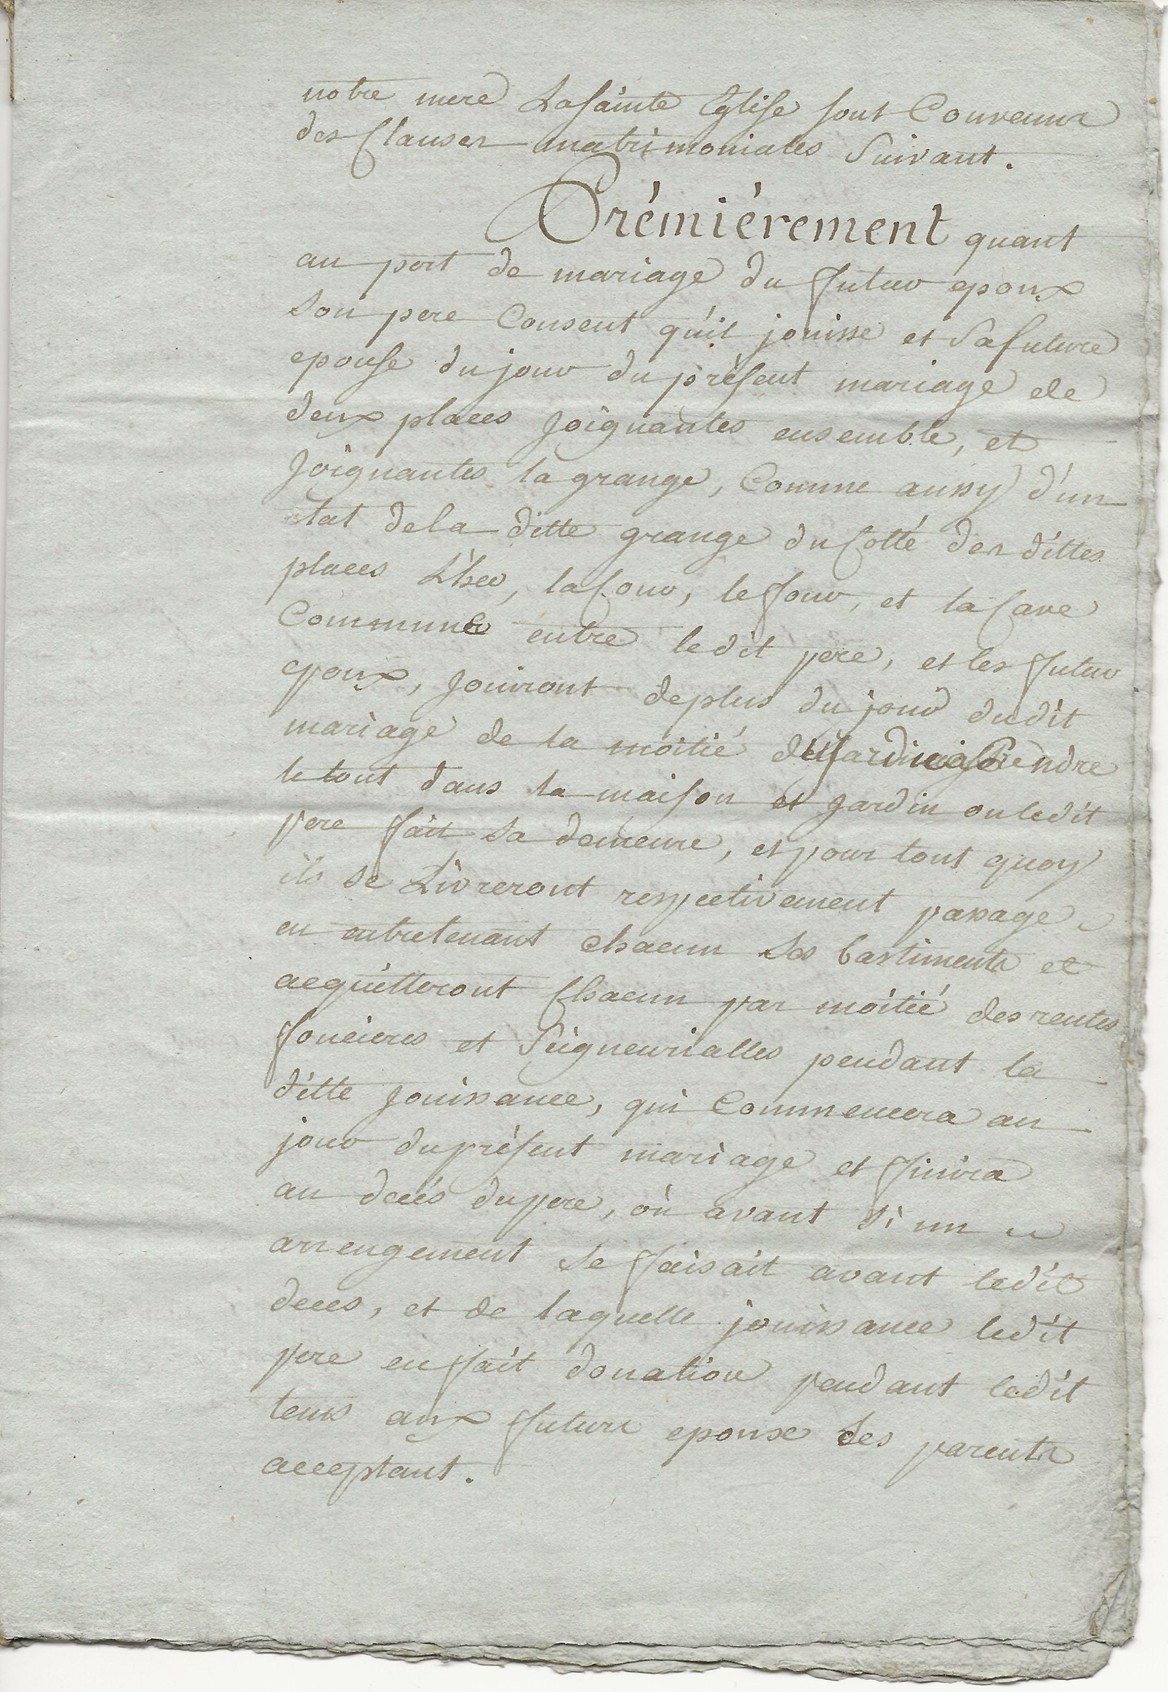 notre mere La sainte Eglise sont Convenur
des Clauses matrimoniales Suivant.
Prémiérement quant
au port de mariage du futur epoux
son pere Consent qu'il jouisse et Sa future
epouse du jour du présent mariage de
deux places joignantes ensemble, et
joignantes la grange, Comme aussy d'un
tat de la ditte grange du Cotté des dittes
places L'hec, la Cour, le four, et la Cave
Commune entre ledit pere, et les futur
epoux, jouiront deplus du jour dudit
mariage de la moitié du jardin a Prendre
le tout dans la maison et jardin ou ledit
pere fait sa demeure, et pour tout quoy
ils se Livreront respectivement passage
en entretenant chacun Ses bastiments et
acquitteront Chacun par moitié des rentes
foncieres et Seigneurialles pendant la
ditte jouissance, qui Commencera au
jour du présent mariage et finira
au decés du pere, où avant Si un
arrengement se faisait avant ledit
deces, et de laquelle jouissance ledit
pere en fait donation pendant ledit
tems aux futurs epoux Ses parents
acceptant.